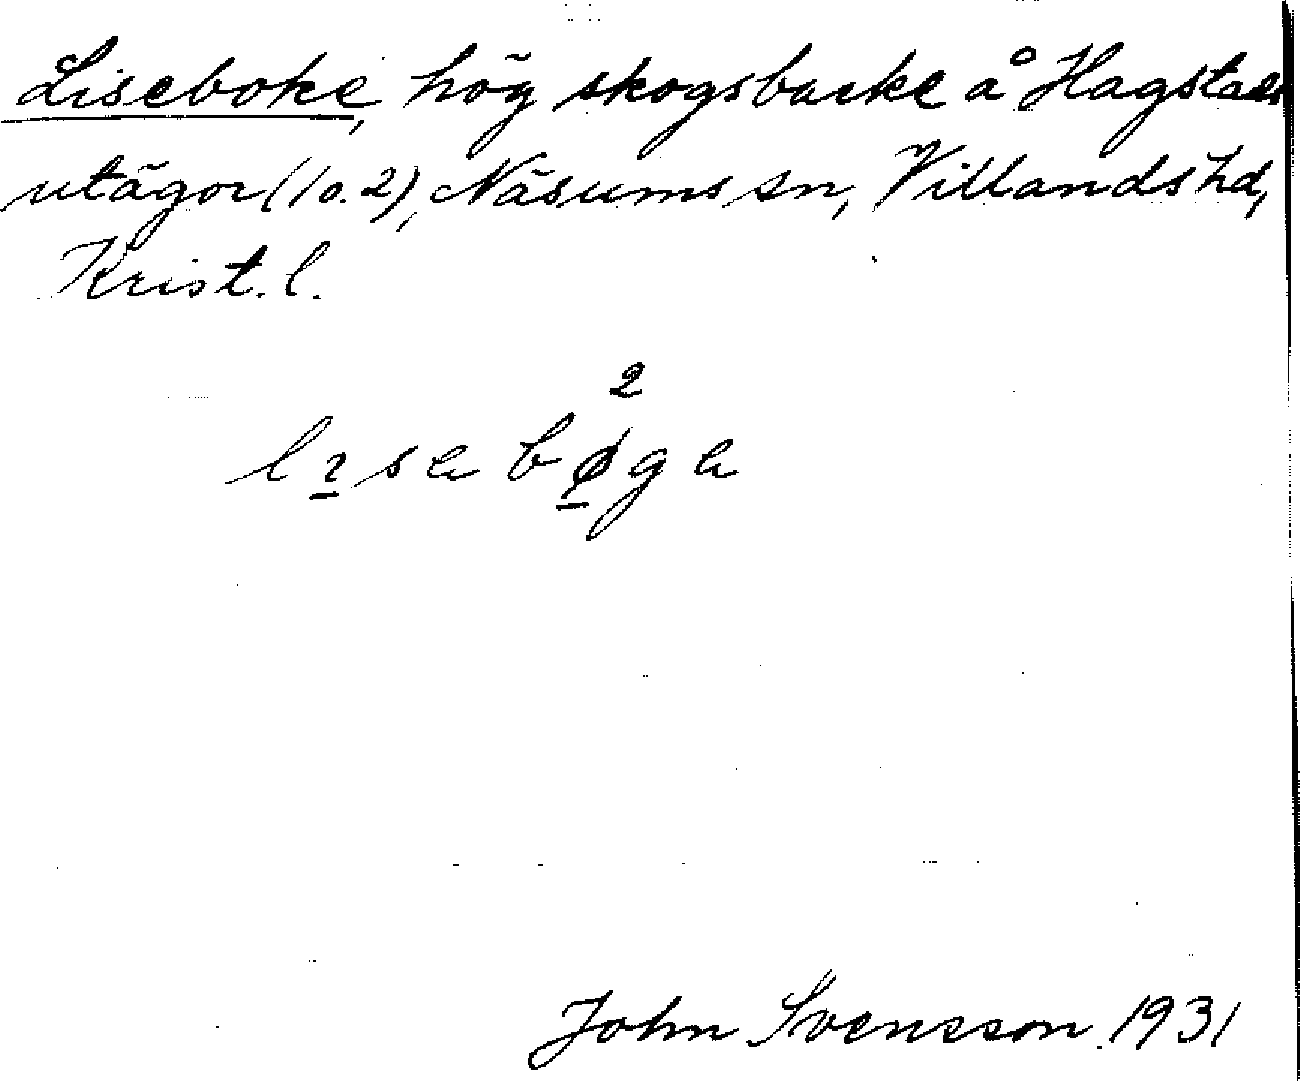 Liseboke, hög skogsbacke å Hagstads
utägor (1 o. 2), Näsums sn, Villands hd,
Krist. l.
2
John Svensson 1931